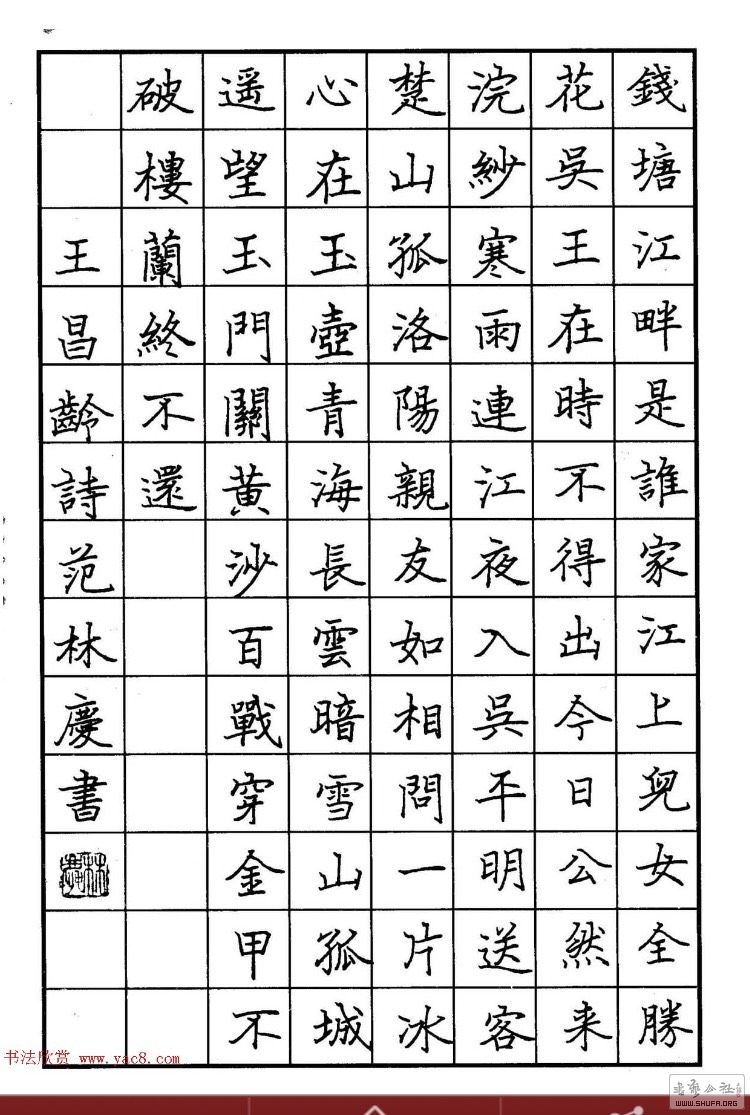 錢塘江畔是誰家江上兒女全勝
花吳王在時不得出今日公然来
浣紗寒雨連江夜入吳平明送客
楚山孤洛陽親友如相問一片冰
心在玉壺青海長雲暗雪山孤城
遥望玉門關黃沙百戰穿金甲不
破樓蘭終不還
王昌齡詩范林慶書
书法欣赏 www.yac8.com
WWW.SHUFA.ORG